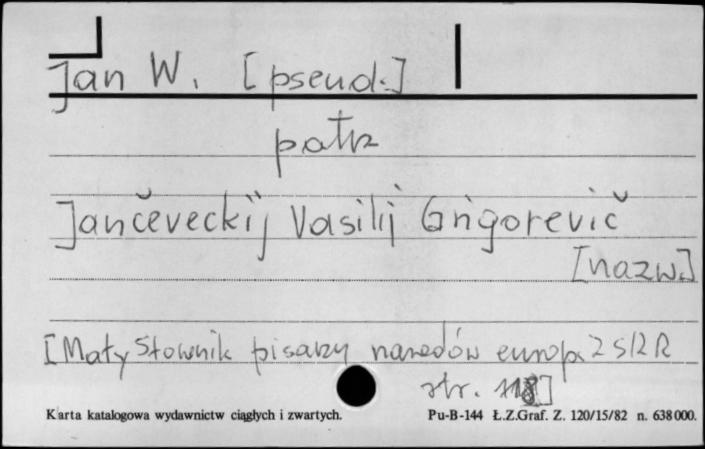 Jan W. [pseud.]
patrz
Jančeveckij Vasilij Grigorevič
[nazw.]
[Mały Słownik pisarzy narodów europ. ZSRR
str. 118]
Karta katalogowa wydawnictw ciągłych i zwartych.
Pu-B-144 Ł.Z.Graf. Z. 120/15/82 n. 638000.